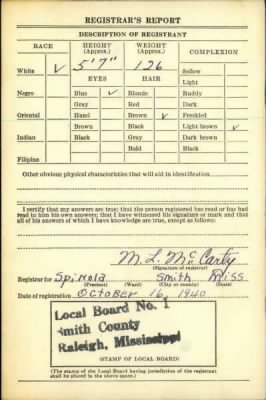 REGISTRAR'S REPORT
DESCRIPTION OF REGISTRANT
RACE HEIGHT (Approx.) WEIGHT (Approx.) COMPLEXION
White ✓ 5'7" 126 Sallow
EYES HAIR Light
Negro Blue ✓ Blonde Ruddy
Gray Red Dark
Oriental Hazel Brown ✓ Freckled
Brown Black Light brown ✓
Indian Black Gray Dark brown
Bald Black
Filipino
Other obvious physical characteristics that will aid in identification
I certify that my answers are true; that the person registered has read or has had
read to him his own answers; that I have witnessed his signature or mark and that
all of his answers of which I have knowledge are true, except as follows:
M. L. McCarty
(Signature of registrar)
Registrar for Smith Miss
(Precinct) (Ward) (City or county) (State)
Date of registration October 16, 1940
Local Board No. 1
Smith County
Raleigh, Mississippi
(STAMP OF LOCAL BOARD)
(The stamp of the Local Board having jurisdiction of the registrant
shall be placed in the above space.)